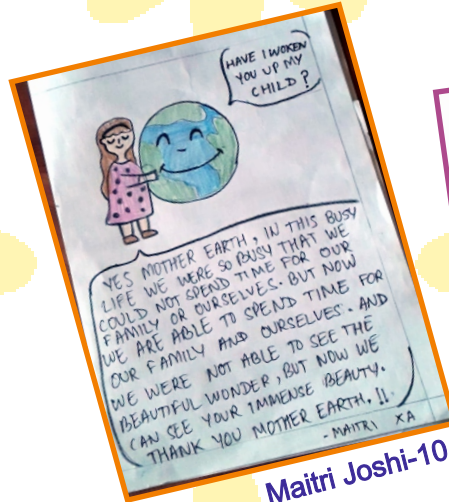 HAVE I WOKEN
YOU UP MY
CHILD?
YES MOTHER EARTH, IN THIS BUSY
LIFE WE WERE SO BUSY THAT WE
COULD NOT SPEND TIME FOR OUR
FAMILY OR OURSELVES. BUT NOW
WE ARE ABLE TO SPEND TIME FOR
OUR FAMILY AND OURSELVES. AND
WE WERE NOT ABLE TO SEE THE
BEAUTIFUL WONDER, BUT NOW WE
CAN SEE YOUR IMMENSE BEAUTY.
THANK YOU MOTHER EARTH. !!
- MAITRI XA
Maitri Joshi-10